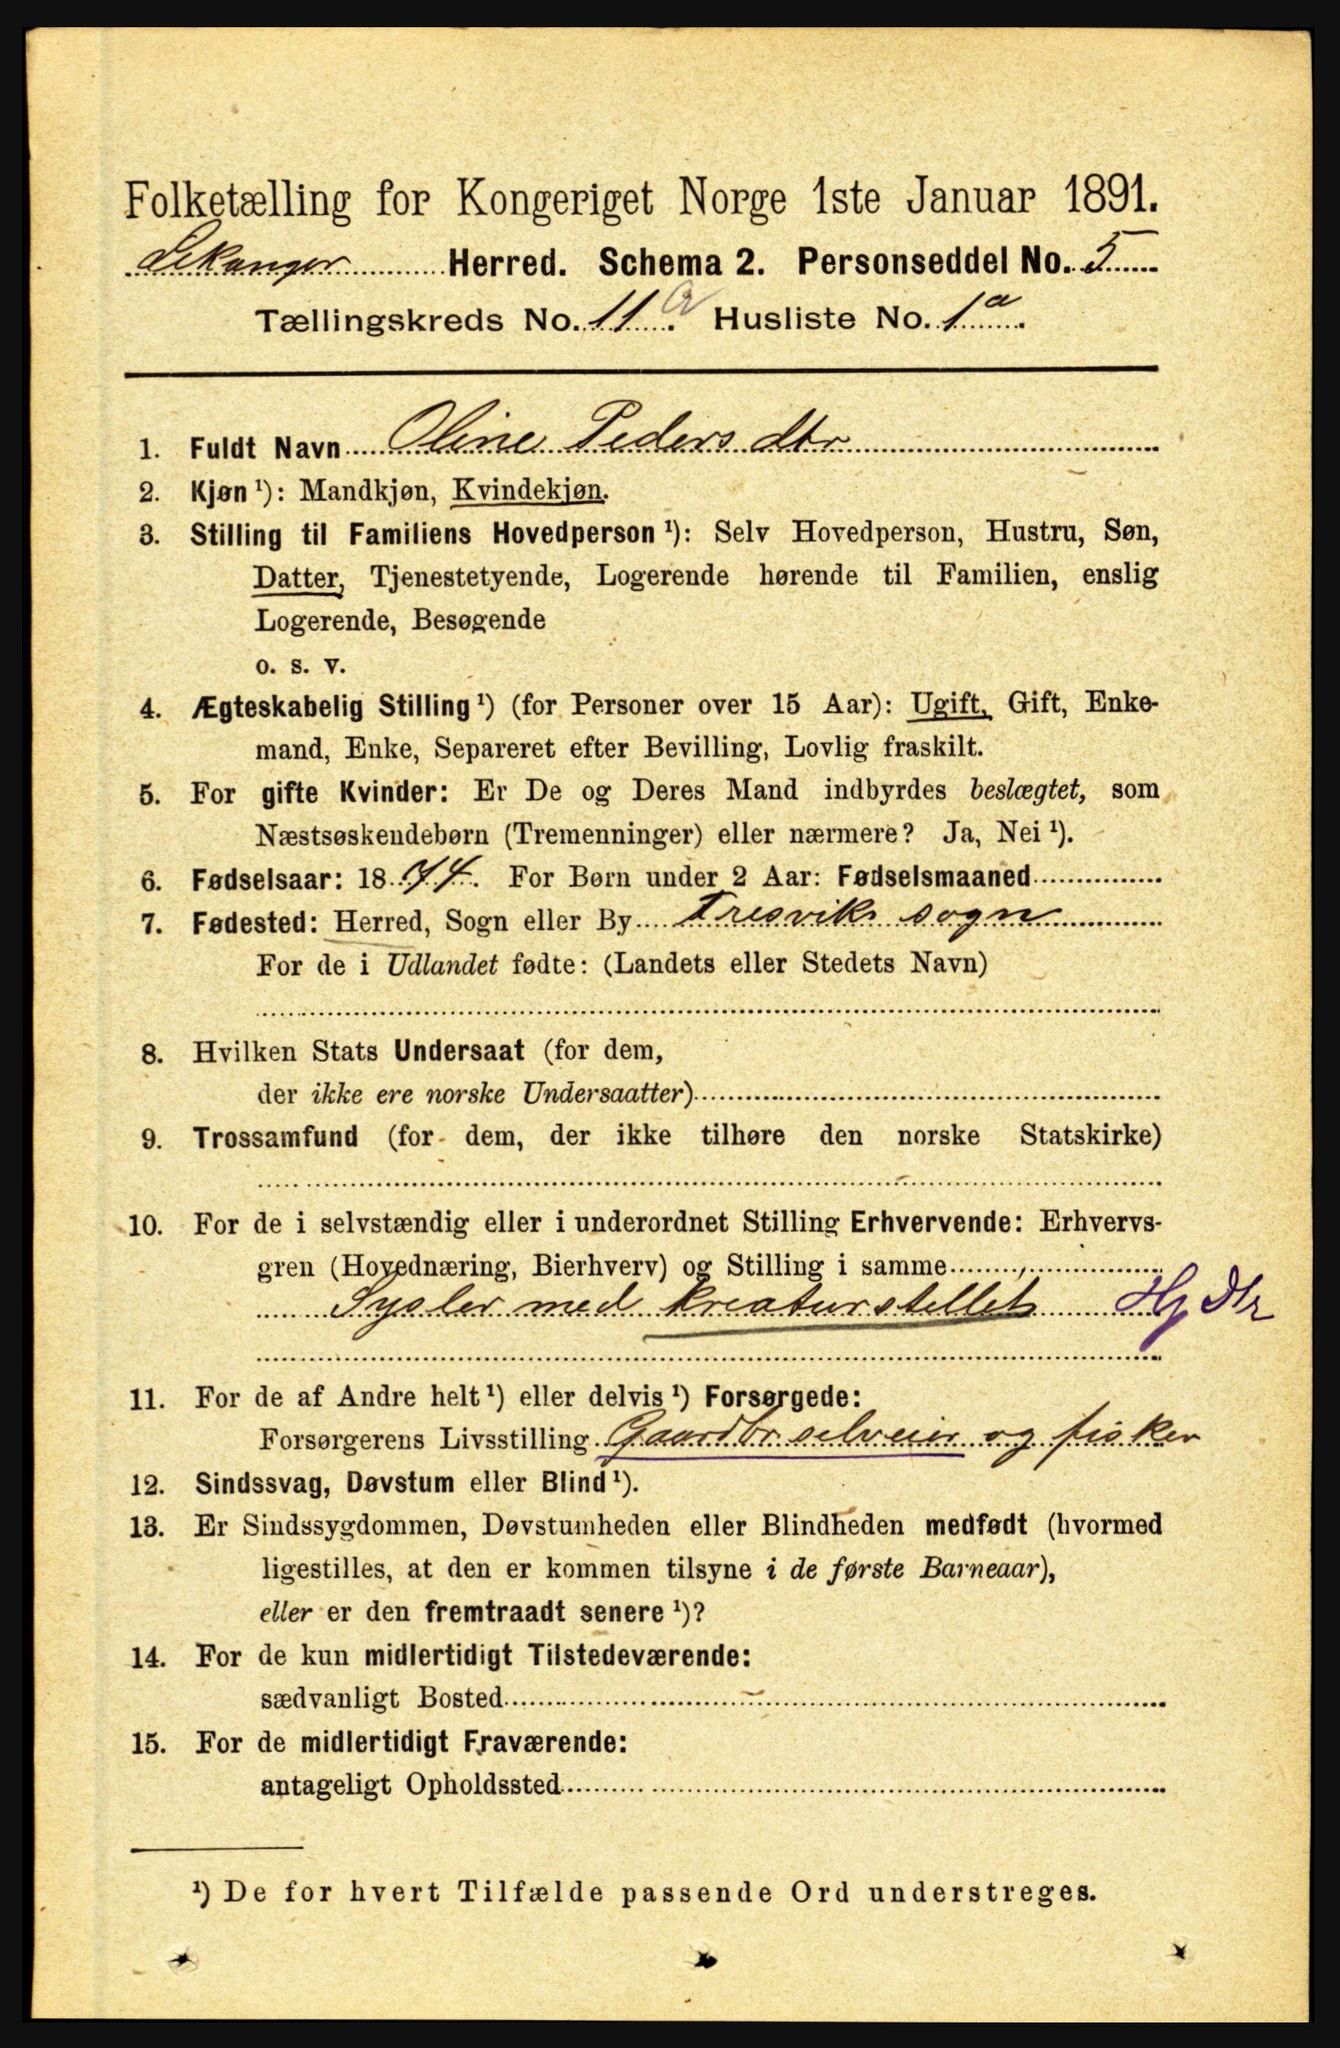 Folketælling for Kongeriget Norge 1ste Januar 1891.
Lekanger Herred. Schema 2. Personseddel No. 5
Tællingskreds No. 11 a. Husliste No. 1 a.
1. Fuldt Navn Oline Pedersdtr
2. Kjøn ¹): Mandkjøn, Kvindekjøn.
3. Stilling til Familiens Hovedperson ¹): Selv Hovedperson, Hustru, Søn,
Datter, Tjenestetyende, Logerende hørende til Familien, enslig
Logerende, Besøgende
o. s. v.
4. Ægteskabelig Stilling ¹) (for Personer over 15 Aar): Ugift, Gift, Enke-
mand, Enke, Separeret efter Bevilling, Lovlig fraskilt.
5. For gifte Kvinder: Er De og Deres Mand indbyrdes beslægtet, som
Næstsøskendebørn (Tremenninger) eller nærmere? Ja, Nei ¹).
6. Fødselsaar: 1874. For Børn under 2 Aar: Fødselsmaaned
7. Fødested: Herred, Sogn eller By Tresviks sogn
For de i Udlandet fødte: (Landets eller Stedets Navn)
8. Hvilken Stats Undersaat (for dem,
der ikke ere norske Undersaatter)
9. Trossamfund (for dem, der ikke tilhøre den norske Statskirke)
10. For de i selvstændig eller i underordnet Stilling Erhvervende: Erhvervs-
gren (Hovednæring, Bierhverv) og Stilling i samme
Sysler med kreaturstellet Hj Dtr
11. For de af Andre helt ¹) eller delvis ¹) Forsørgede:
Forsørgerens Livsstilling Gaardbr selveier og fisker
12. Sindssvag, Døvstum eller Blind ¹).
13. Er Sindssygdommen, Døvstumheden eller Blindheden medfødt (hvormed
ligestilles, at den er kommen tilsyne i de første Barneaar),
eller er den fremtraadt senere ¹)?
14. For de kun midlertidigt Tilstedeværende:
sædvanligt Bosted
15. For de midlertidigt Fraværende:
antageligt Opholdssted
¹) De for hvert Tilfælde passende Ord understreges.